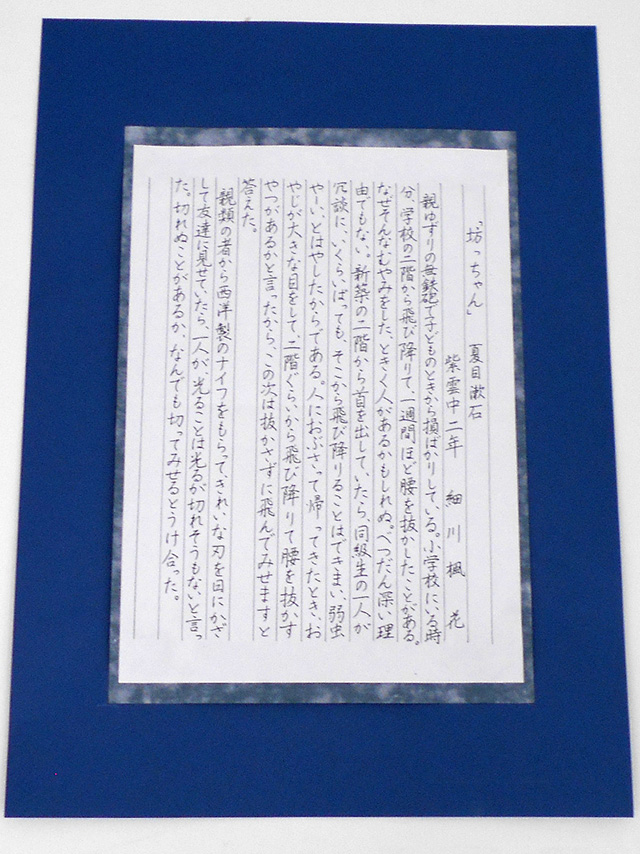 「坊っちゃん」　夏目漱石
紫雲中二年　細川楓花
親ゆずりの無鉄砲で子どものときから損ばかりしている。小学校にいる時
分、学校の二階から飛び降りて、一週間ほど腰を抜かしたことがある。
なぜそんなむやみをした、ときく人があるかもしれぬ。べつだん深い理
由でもない。新築の二階から首を出していたら、同級生の一人が
冗談に、いくらいばっても、そこから飛び降りることはできまい、弱虫
やーい、とはやしたからである。人におぶさって帰ってきたとき、お
やじが大きな目をして、二階ぐらいから飛び降りて腰を抜かす
やつがあるかと言ったから、この次は抜かさずに飛んでみせますと
答えた。
親類の者から西洋製のナイフをもらって、きれいな刃を日にかざ
して友達に見せていたら、一人が、光ることは光るが切れそうもないと言っ
た。切れぬことがあるか、なんでも切ってみせるとうけ合った。